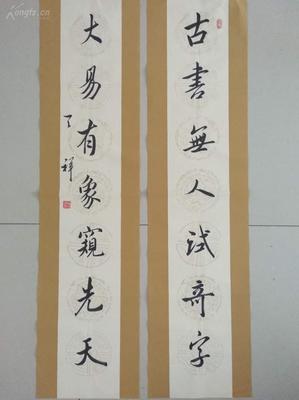 古書無人試奇字
大易有象窺先天
天祥